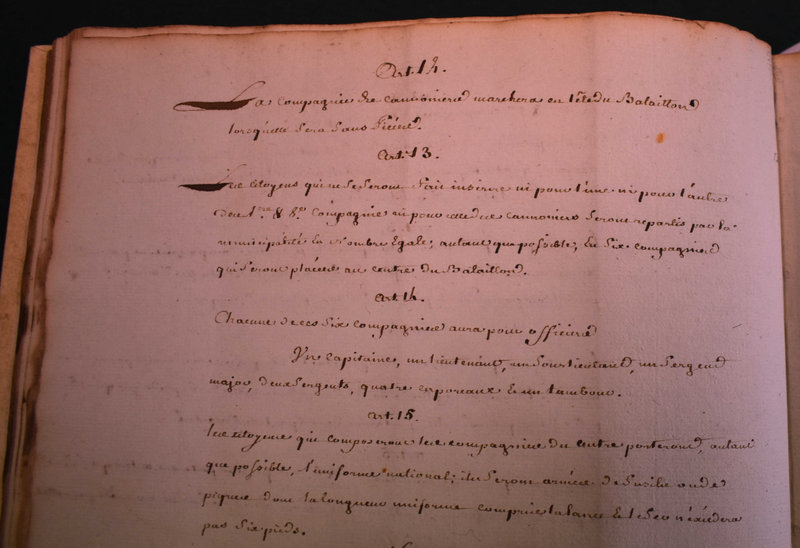 Art. 12.
La Compagnie de canonniers marchera en tête du Bataillon
lorsqu'elle sera sans pièces.
Art. 13.
Les citoyens qui ne se seront fait inscrire ni pour l'une ni pour l'autre
des 1re & 8e Compagnies ni pour celle des canonniers seront repartis par la
municipalité En Nombre Egale, autant que possible, En Six compagnies
qui seront placées au centre du Bataillon.
Art. 14.
Chacune de ces Six compagnies aura pour officiers
Un Capitaine, un lieutenant, un sous lieutenant, un Sergent
major, deux Sergents, quatre caporeaux & un tambour.
Art. 15.
les citoyens qui composeront les compagnies du centre porteront, autant
que possible, l'uniforme national; ils seront armées de fusils ou de
piques dont la longueur uniforme comprise la lance & le n'éxcédera
pas six pieds.